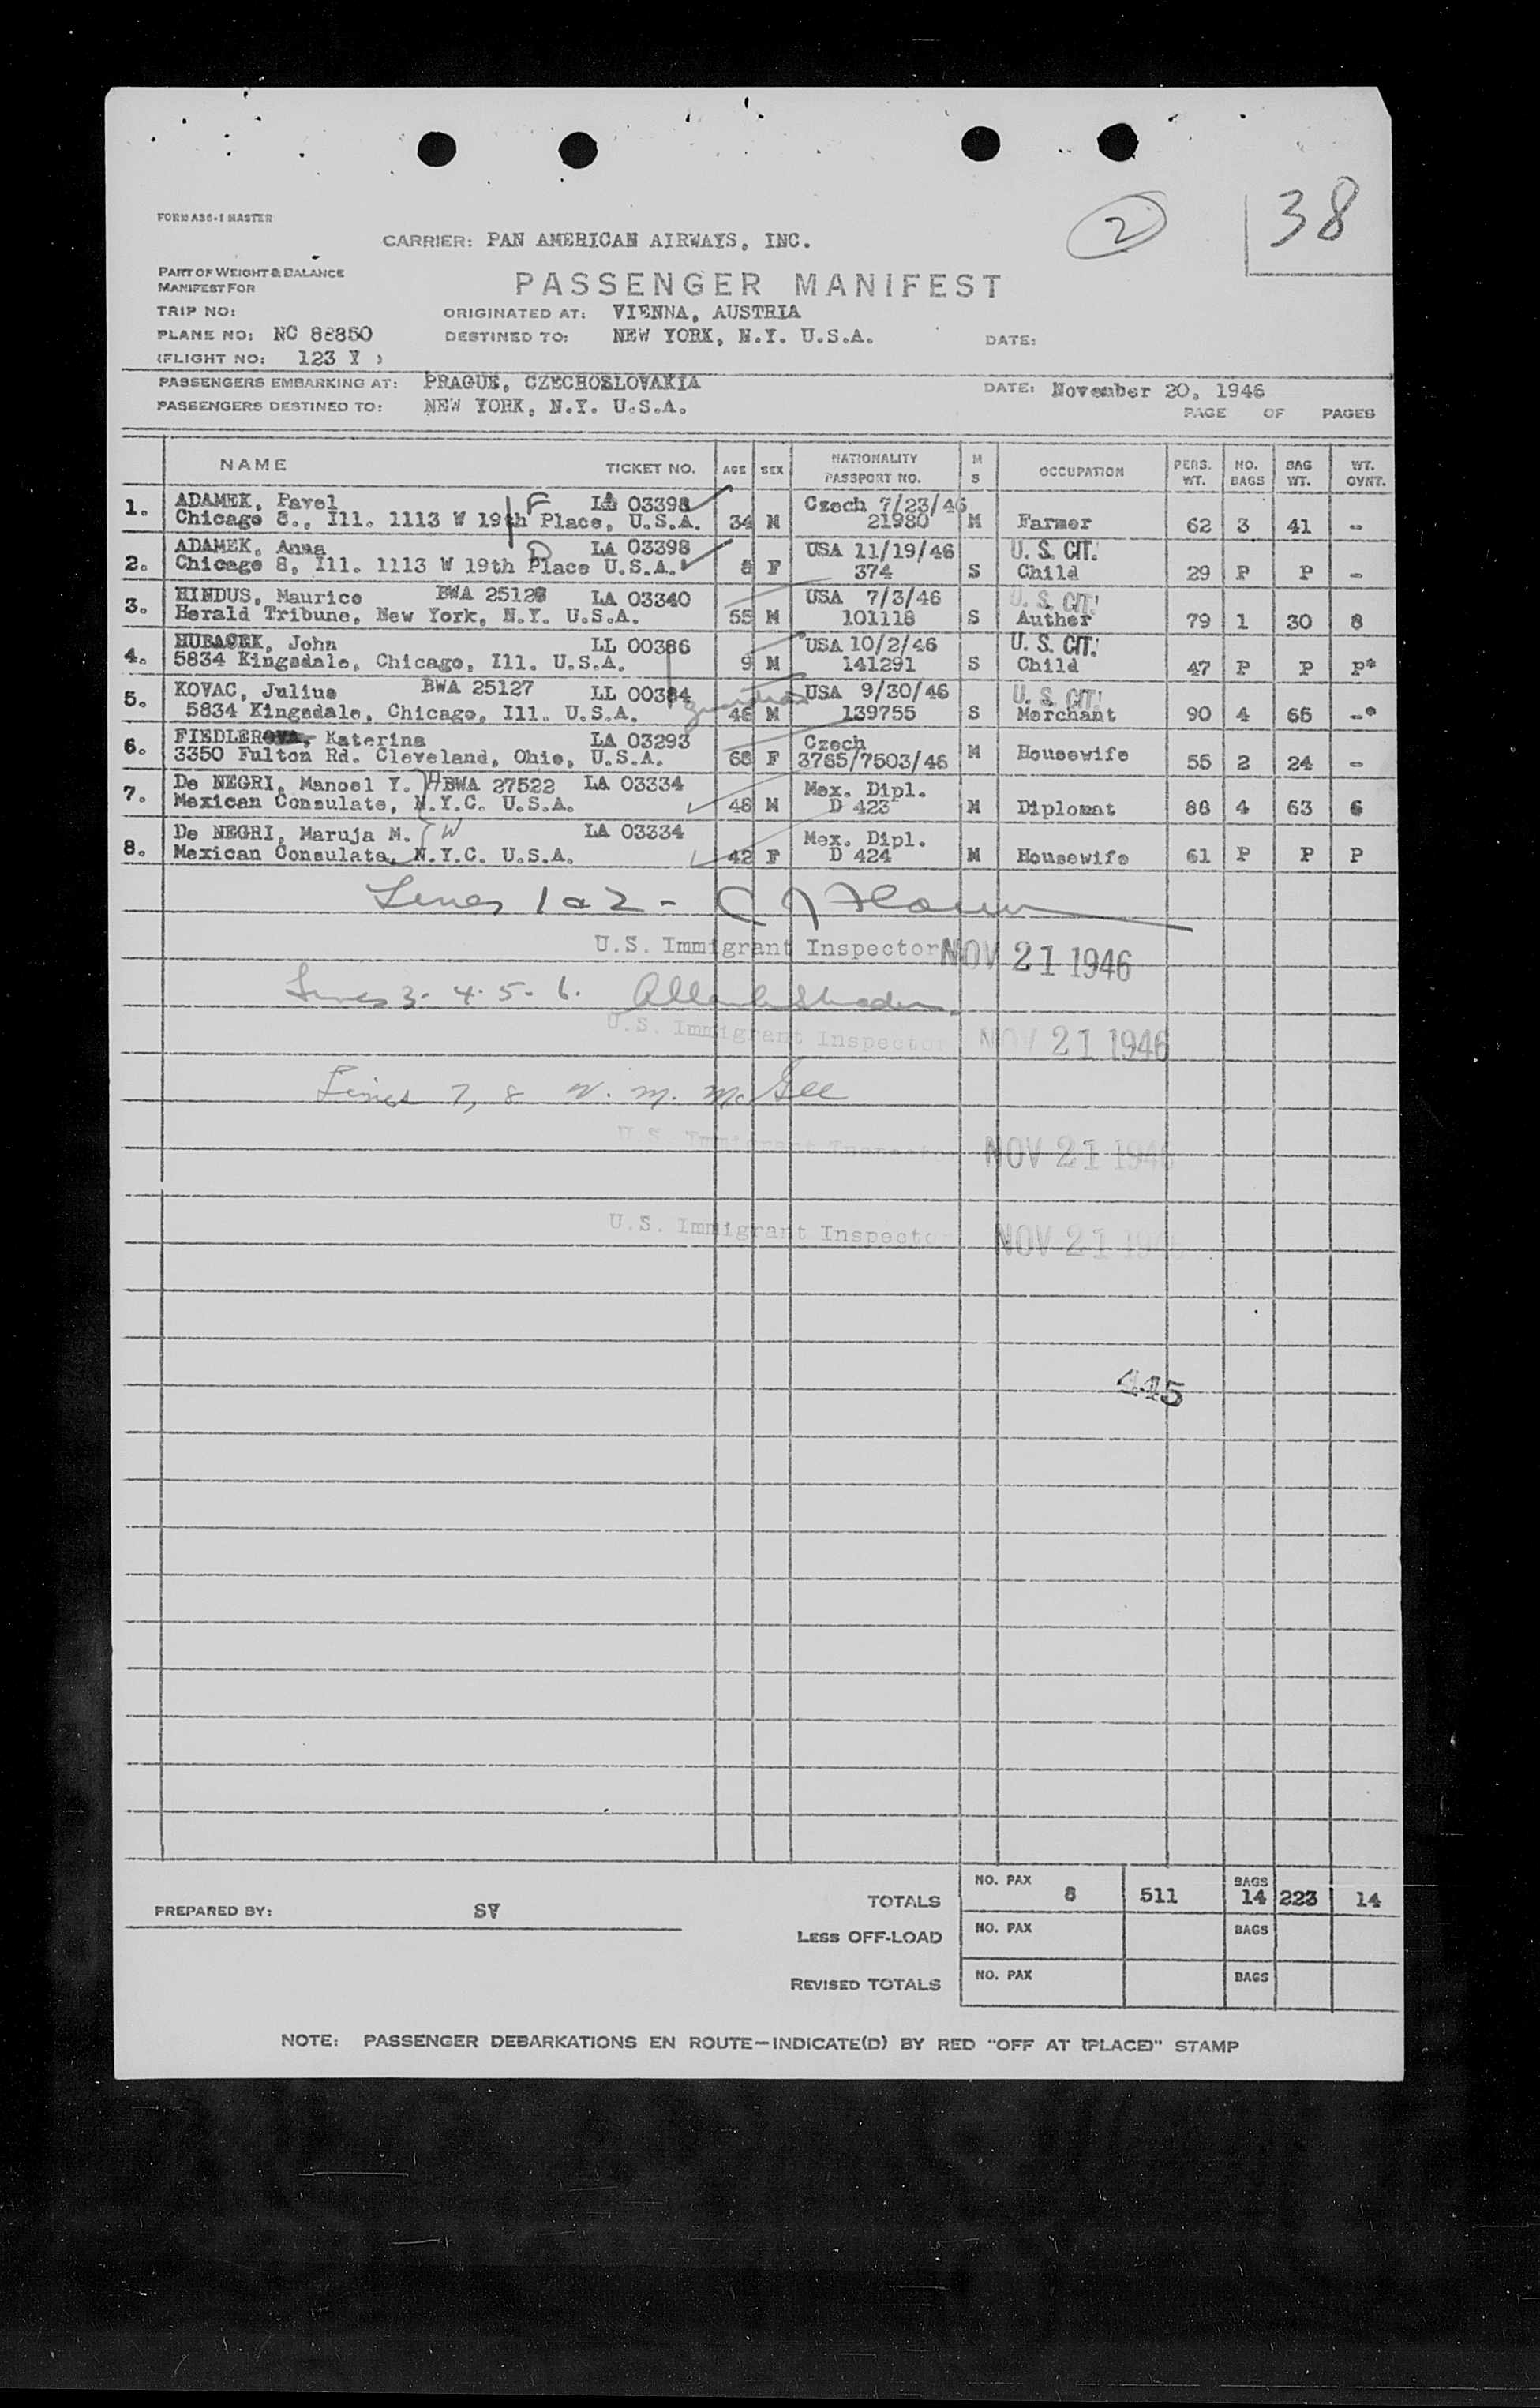 38
2
FORM A36-1 MASTER
CARRIER: PAN AMERICAN AIRWAYS, INC.
PART OF WEIGHT & BALANCE
MANIFEST FOR
PASSENGER MANIFEST
TRIP NO:
ORIGINATED AT: VIENNA, AUSTRIA
PLANE NO: NC 88850
DESTINED TO: NEW YORK, N.Y. U.S.A.
DATE:
(FLIGHT NO: 123 Y )
PASSENGERS EMBARKING AT: PRAGUE, CZECHOSLOVAKIA
DATE: November 20, 1946
PASSENGERS DESTINED TO: NEW YORK, N.Y. U.S.A.
PAGE OF PAGES
NAME TICKET NO. AGE SEX NATIONALITY PASSPORT NO. M S OCCUPATION PERS. WT. NO. BAGS BAG WT. WT. OVNT.
1. ADAMEK, Pavel F LA 03398 Czech 7/23/46
Chicago 8., Ill. 1113 W 19th Place, U.S.A. 34 M 21980 M Farmer 62 3 41 -
2. ADAMEK, Anna D LA 03398 USA 11/19/46 U. S. CIT.
Chicago 8, Ill. 1113 W 19th Place U.S.A. 8 F 374 S Child 29 P P -
3. HINDUS, Maurice BWA 25128 LA 03340 USA 7/3/46 U. S. CIT.
Herald Tribune, New York, N.Y. U.S.A. 55 M 101118 S Auther 79 1 30 8
4. HUBACEK, John LL 00386 USA 10/2/46 U. S. CIT.
5834 Kingsdale, Chicago, Ill. U.S.A. 9 M 141291 S Child 47 P P P*
5. KOVAC, Julius BWA 25127 LL 00384 guardian USA 9/30/46 U. S. CIT.
5834 Kingsdale, Chicago, Ill. U.S.A. 46 M 139755 S Merchant 90 4 65 -*
6. FIEDLEROVA, Katerina LA 03293 Czech
3350 Fulton Rd. Cleveland, Ohio, U.S.A. 68 F 3765/7503/46 M Housewife 55 2 24 -
7. De NEGRI, Manoel Y. H BWA 27522 LA 03334 Mex. Dipl.
Mexican Consulate, N.Y.C. U.S.A. 48 M D 423 M Diplomat 88 4 63 6
8. De NEGRI, Maruja M. W LA 03334 Mex. Dipl.
Mexican Consulate, N.Y.C. U.S.A. 42 F D 424 M Housewife 61 P P P
Lines 1 & 2 -
U.S. Immigrant Inspector NOV 21 1946
Lines 3. 4. 5. 6.
U.S. Immigrant Inspector NOV 21 1946
Lines 7, 8 W. M. McGee
U.S. Immigrant Inspector NOV 21 1946
U.S. Immigrant Inspector NOV 21 1946
445
PREPARED BY: SV
TOTALS NO. PAX 8 511 BAGS 14 223 14
LESS OFF-LOAD NO. PAX BAGS
REVISED TOTALS NO. PAX BAGS
NOTE: PASSENGER DEBARKATIONS EN ROUTE—INDICATE(D) BY RED "OFF AT (PLACE)" STAMP